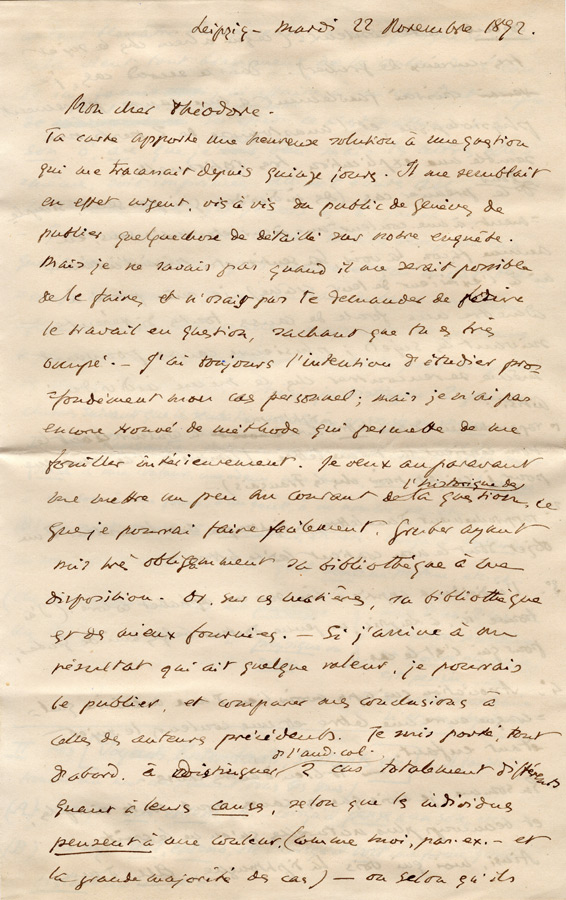 Leipzig – mardi 22 Novembre 1892.
Mon cher Théodore.
Ta carte apporte une heureuse solution à une question
qui me tracassait depuis quinze jours. Il me semblait
en effet urgent, vis à vis du public de Genève, de
publier quelquechose de détaillé sur notre enquête.
Mais je ne savais pas quand il me serait possible
de le faire, et n'osais pas te demander de faire
le travail en question, sachant que tu es très
occupé. – J'ai toujours l'intention d'étudier pro=
=fondément mon cas personnel; mais je n'ai pas
encore trouvé de méthode qui permette de me
fouiller intérieurement. Je veux auparavant
l'historique de
me mettre un peu au courant de la question, ce
que je pourrai faire facilement, Gruber ayant
mis très obligemment sa bibliothèque à ma
disposition. Or, sur ces matières, sa bibliothèque
est des mieux fournies. – Si j'arrive à un
résultat qui ait quelque valeur, je pourrais
le publier, et comparer mes conclusions à
celles des auteurs précédents. Je suis porté, tout
d'l'aud. col.
d'abord, à distinguer 2 cas totalement différents
quant à leurs causes, selon que les individus
pensent à une couleur, (comme moi, par ex. – et
la grande majorité des cas) – ou selon qu'ils